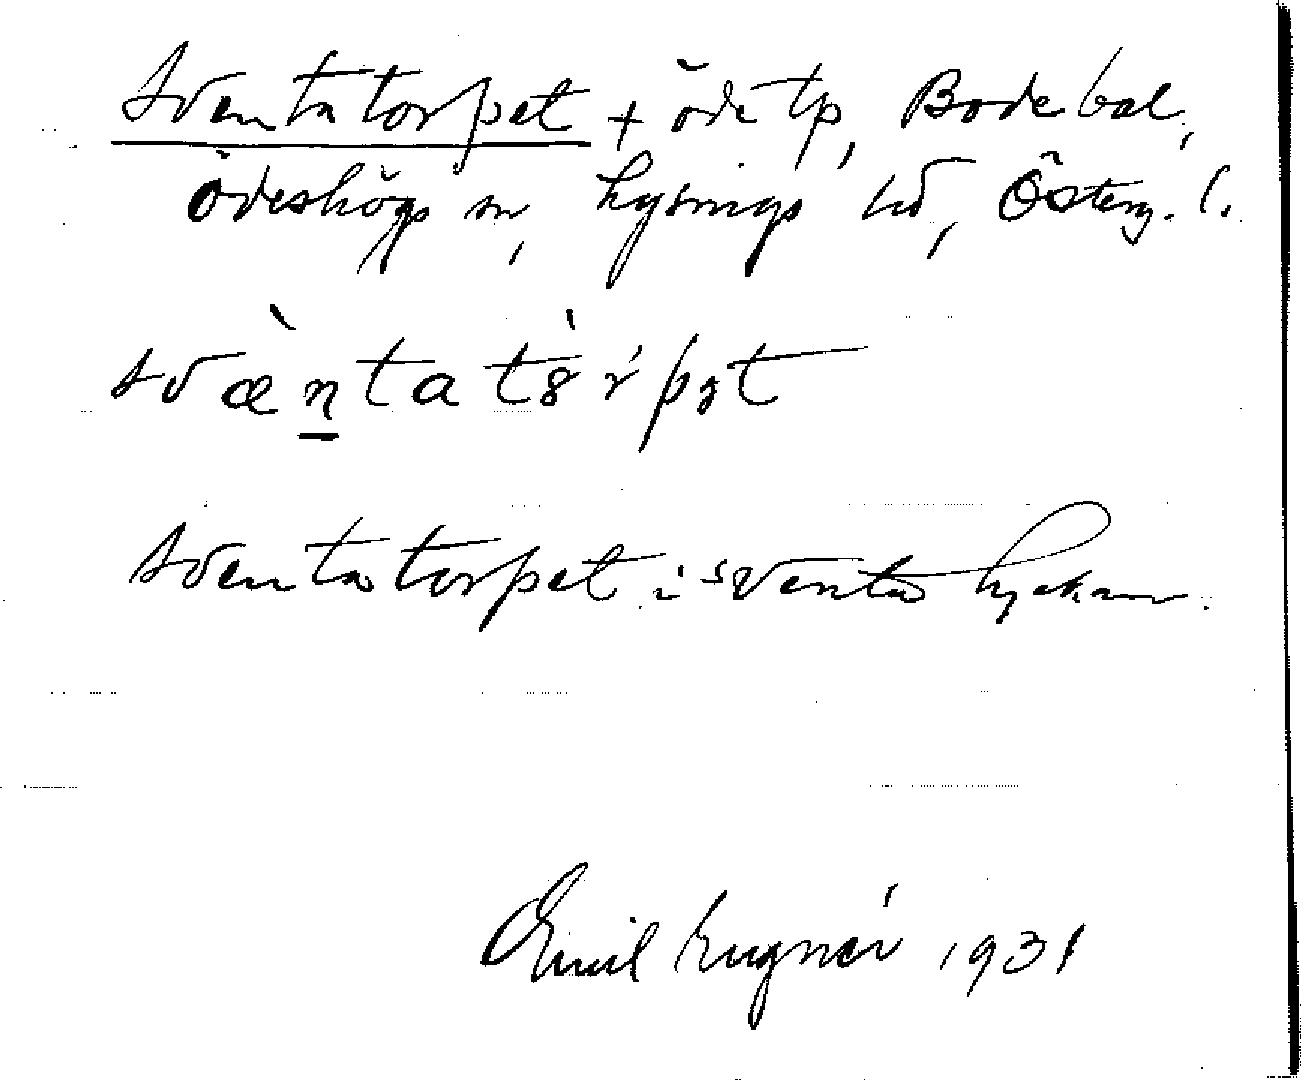 Sventatorpet + öde tp, Bodebol,
Ödeshögs sn, Lysings hd, Österg. l.
svæ̀n̲tatȯ̀rpət
Sventatorpet i Sventalyckan.
Emil Lugnér 1931